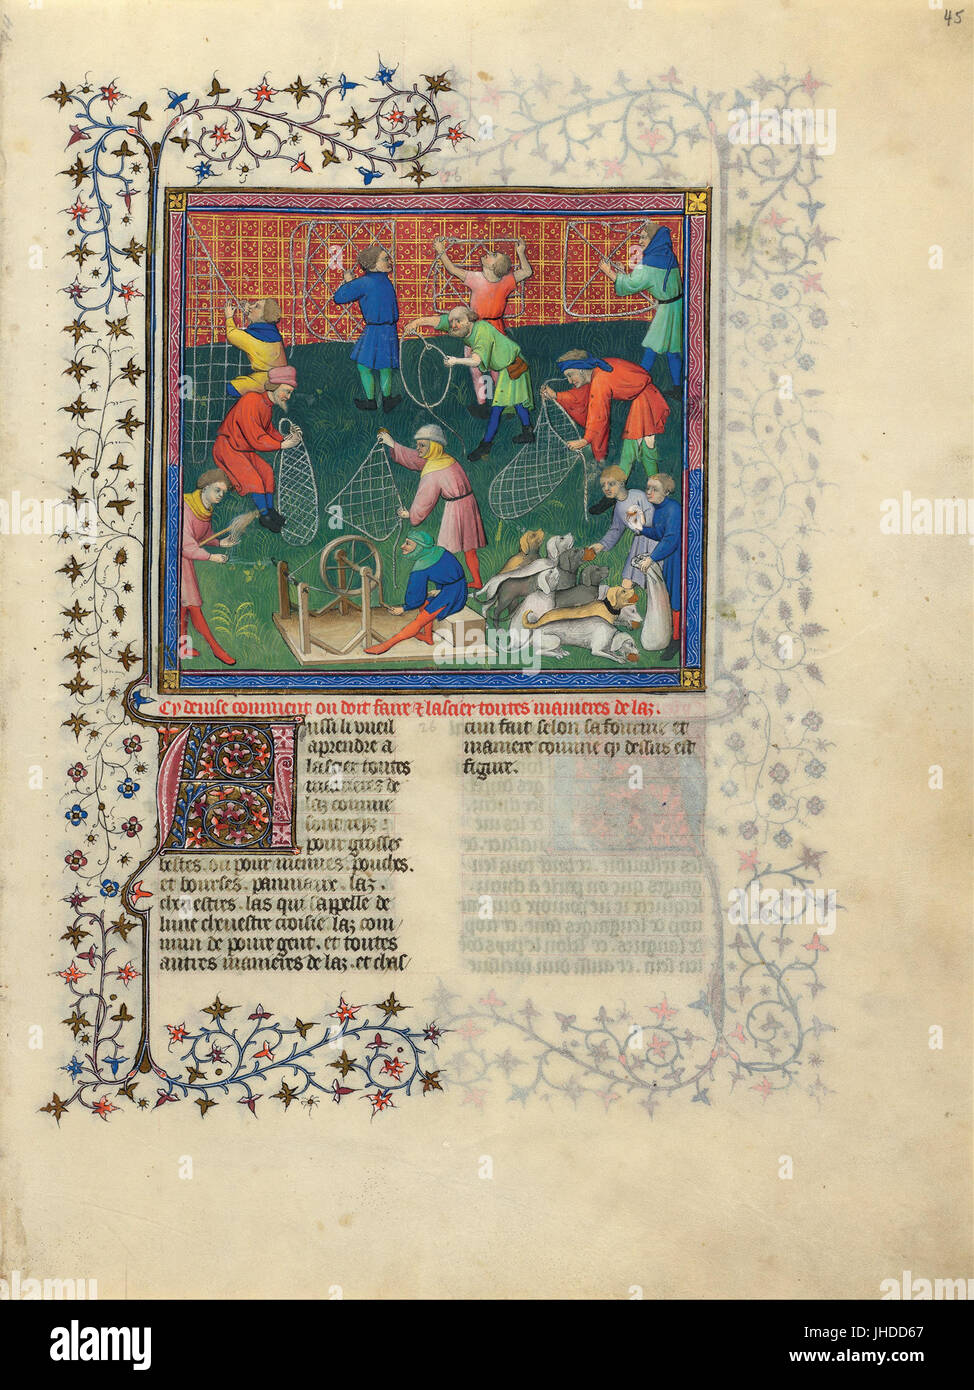 45
26
Cy devise comment on doit faire & lascier toutes manieres de laz.
Aussi le vueil
aprendre a
lascier toutes
manieres de
laz comme
sont reys
pour grosses
bestes. ou pour menues. pouches.
et bourses. panniaux. laz.
chevestres. las qui sappelle de
lune chevestre croisie. laz com/
mun de povre gent. et toutes
autres manieres de laz. et chas/
26
cun fait selon sa fourme et
maniere comme cy dessus est
figure.
alamy stock photo
JHDD67
www.alamy.com